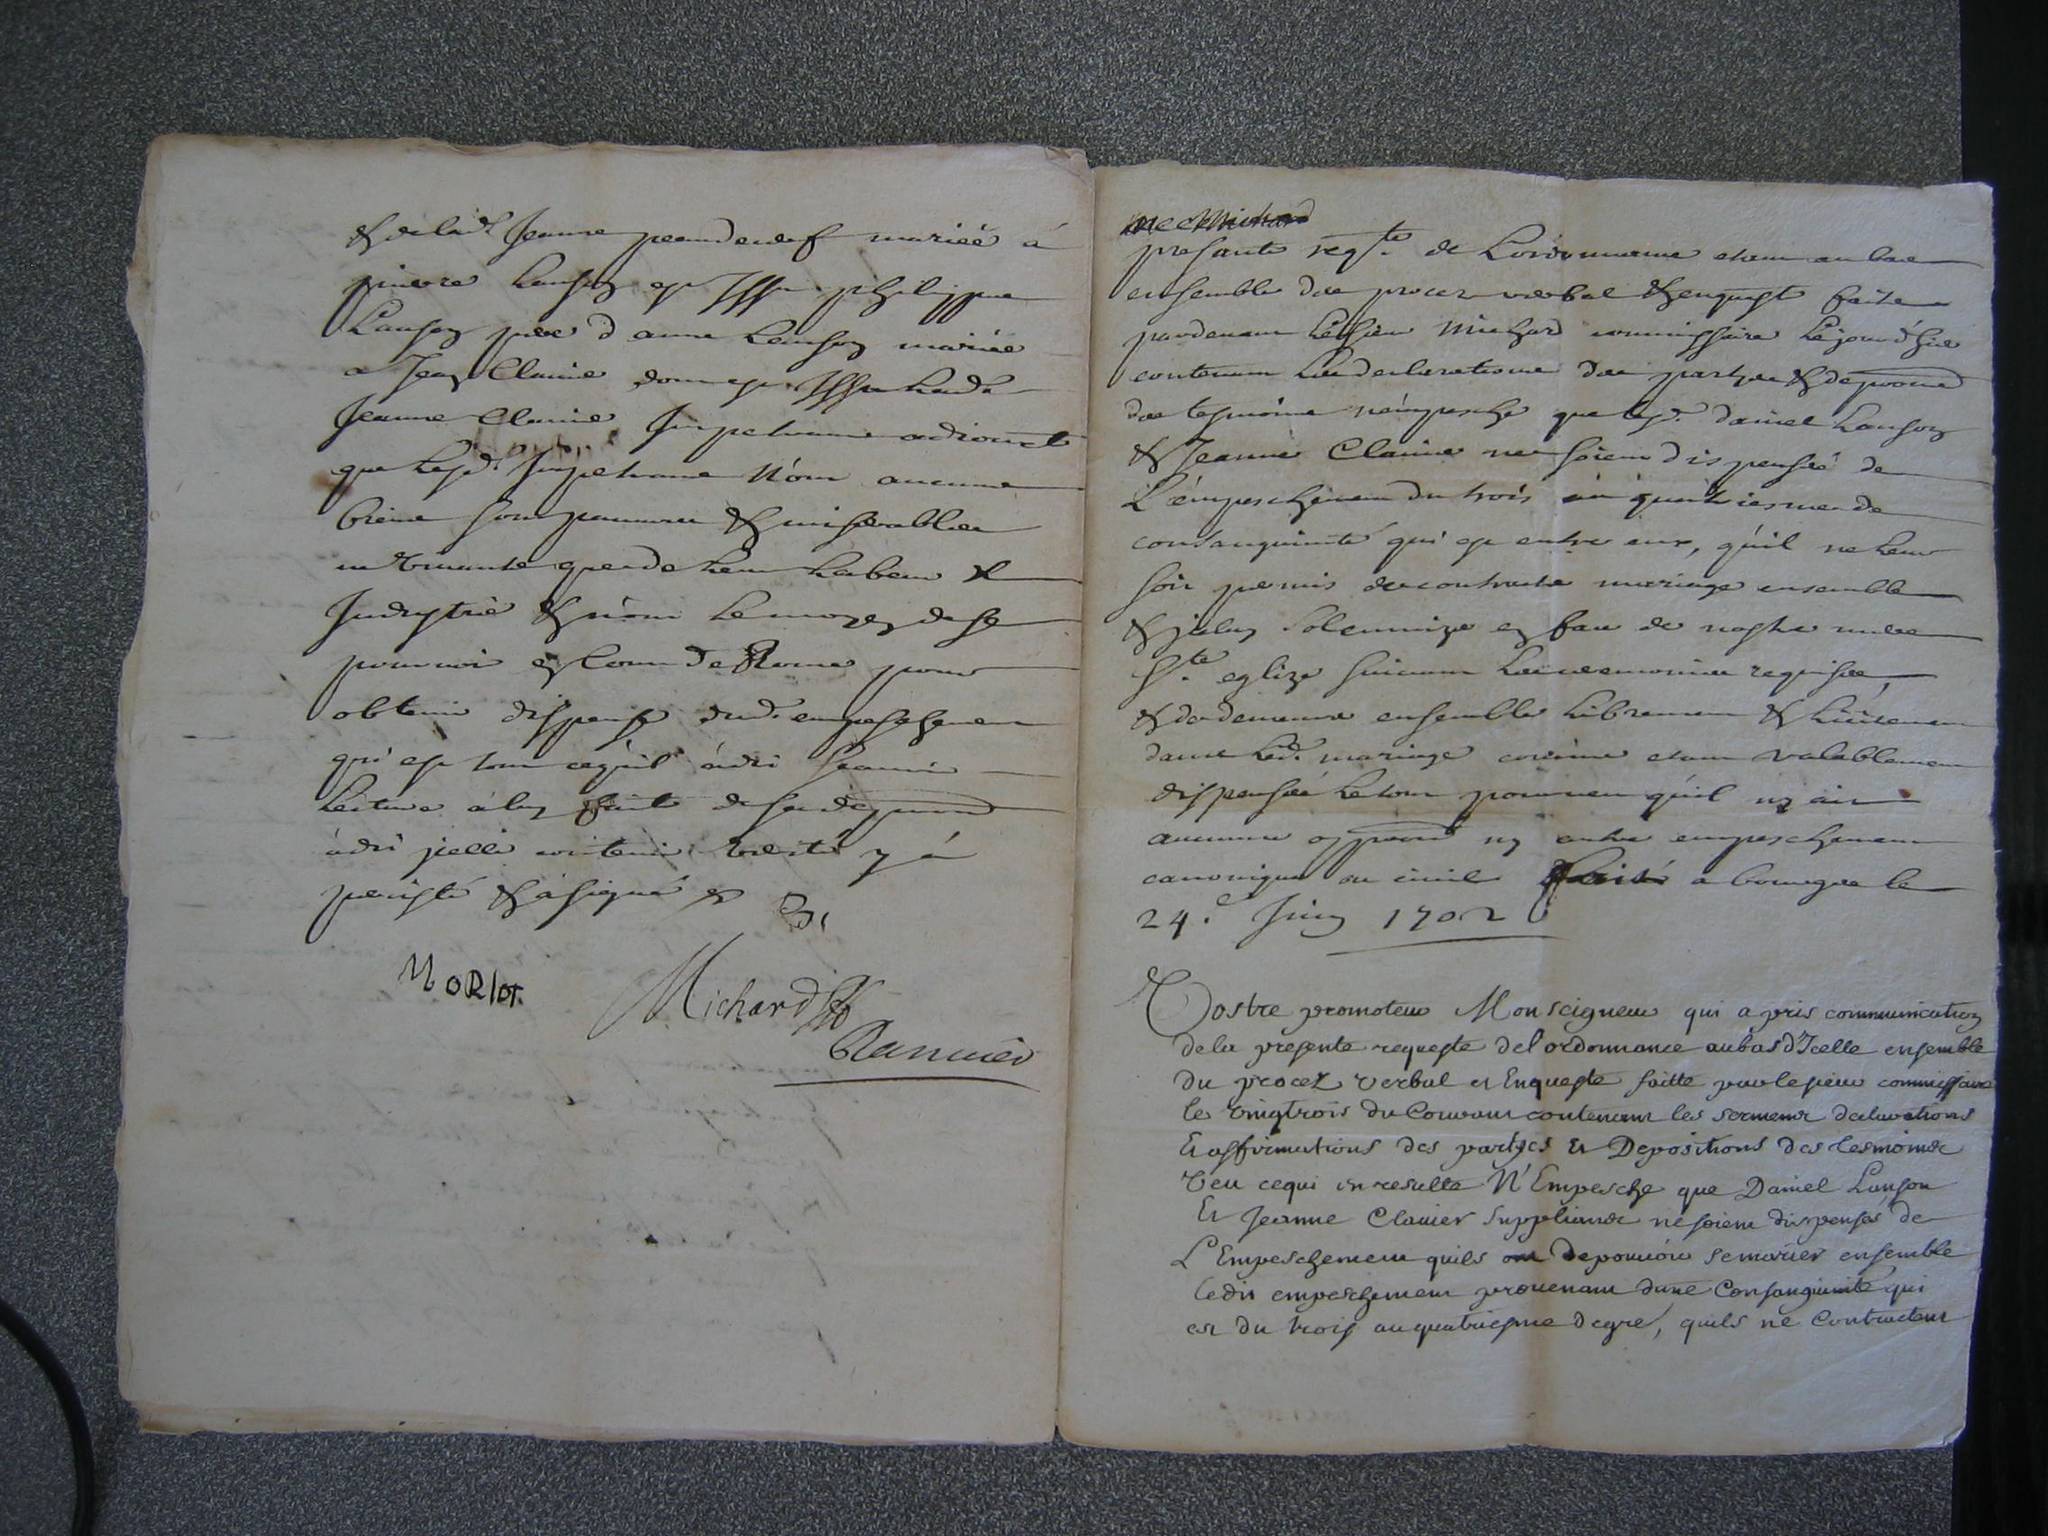 & de lad. Jeanne peaudeuf mariée à
pierre Lanson est Issu philippe
Lanson pere d'anne Lanson mariée
a Jean Clavier dont est Issu Lad.
Jeanne Clavier Impetrante adiouste
que lesd. Impetrans n'ont aucuns
biens sont pauvres & miserables
ne vivants que de leur labeur &
Industrie & n'ont le moyen de se
pourvoir en Cour de Rome pour
obtenir dispense dud. empeschement
qui est tout ce qu'il a dit scavoir
lecture à luy faite de sa depposition
à dit icelle contenir verité y à
persisté & à signé
MoRlot.
Michard
presante reqte. de L'ordonnance etant au bas
ensemble des procez verbal & enqueste faites
pardevant le sieur Michard commissaire le jour d'hier
contenant les declarations des partyes & depositions
des tesmoins n'empesche que lesd. daniel Lanson
& Jeanne Clavier ne soient dispensés de
L'empeschement du trois au quatriesme de
consanguinité qui est entre eux, qu'il ne leur
soit permis de contracter mariage ensemble
& iceluy solemnizer en face de nostre mere
Ste. eglize suivant les ceremonies requises,
& de demeurer ensemble librement & licitement
dans led. mariage comme etant valablement
dispensés le tout pourveu qu'il n'y ait
aucune opposition ny autre empeschement
canonique ou civil a bourges le
24e. Juin 1702
Vostre promoteur Monseigneur qui a pris communication
de la presente requeste del ordonnance au bas d'Icelle ensemble
du procez verbal et Enqueste faitte par le sieur commissaire
le vingtrois du Courant contenant les serments declarations
Et affirmations des partyes Et Depositions des tesmoins
Veu cequi en resulte N'Empesche que Daniel Lanson
Et Jeanne Clavier Suppliants ne soient dispensés de
L'Empeschement quils ont de pouvoir se marier ensemble
ledit empeschement provenant dune Consanguinité qui
est du trois au quatriesme degré, quils ne Contractent